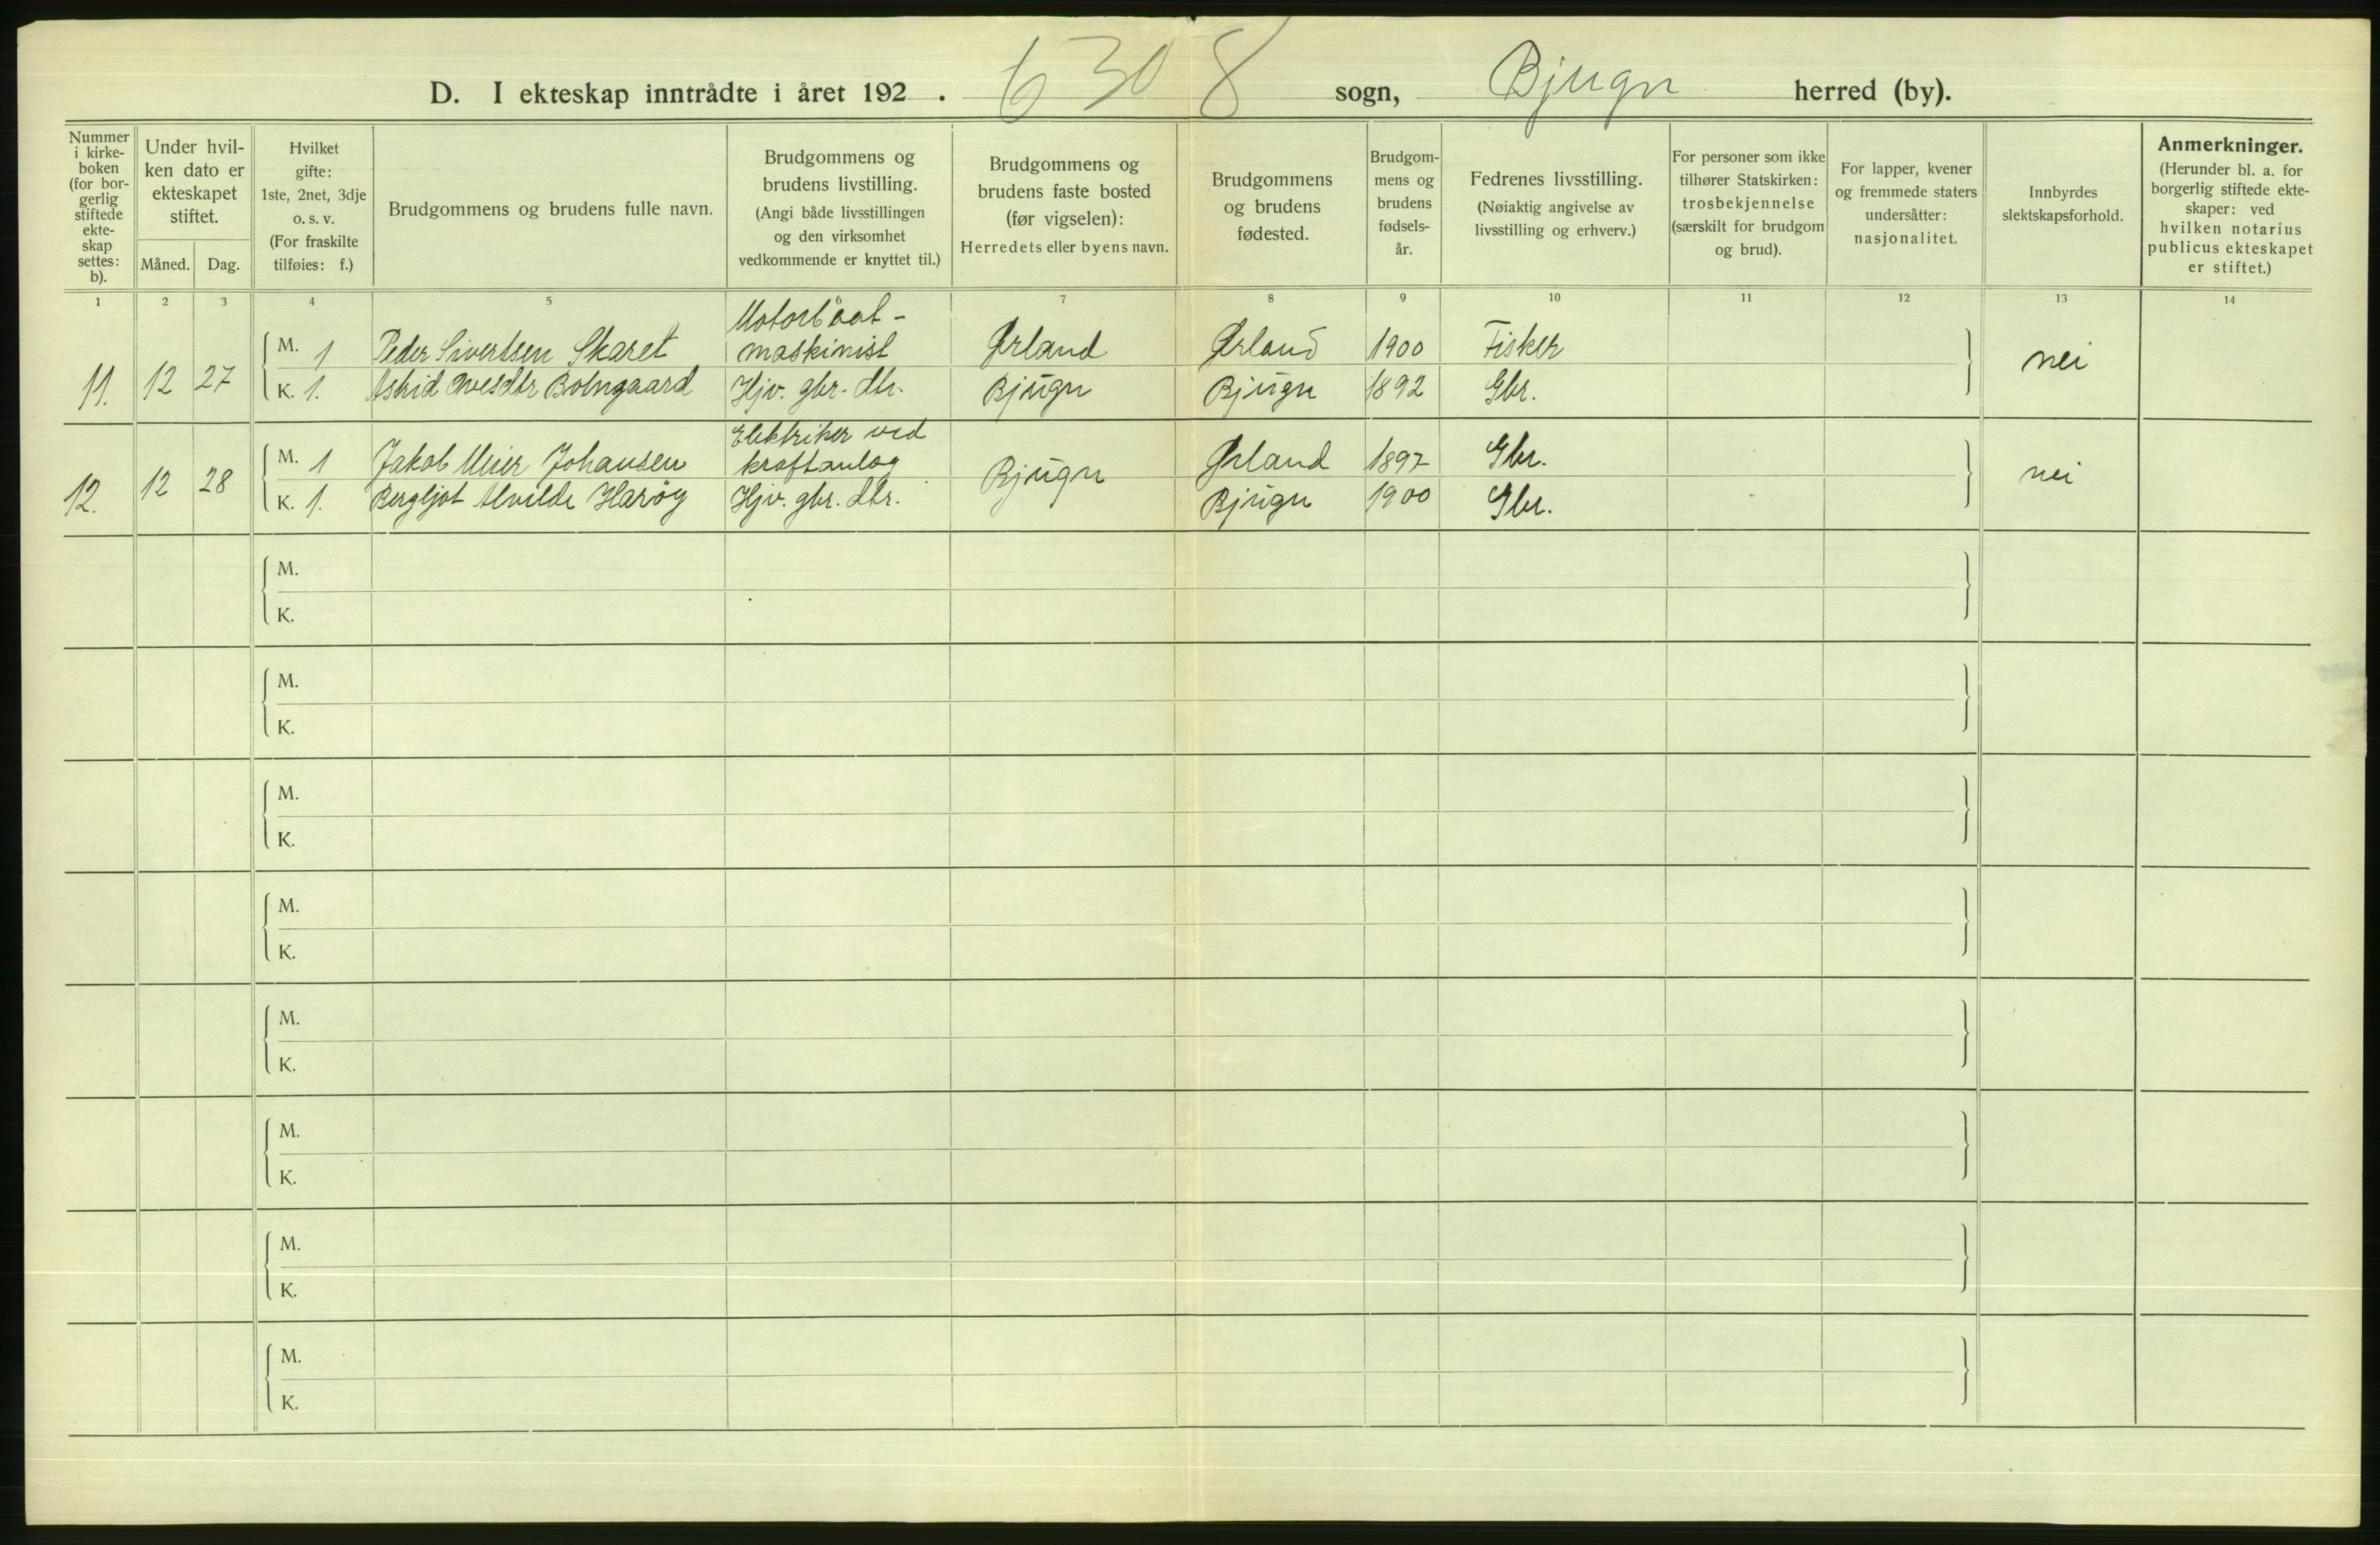 D. I ekteskap inntrådte i året 192 . 6308 sogn, Bjugn herred (by).
Nummer i kirke-boken (for bor-gerlig stiftede ekte-skap settes: b).
Under hvil-ken dato er ekteskapet stiftet.
Måned. Dag.
Hvilket gifte: 1ste, 2net, 3dje o. s. v. (For fraskilte tilføies: f.)
Brudgommens og brudens fulle navn.
Brudgommens og brudens livstilling. (Angi både livsstillingen og den virksomhet vedkommende er knyttet til.)
Brudgommens og brudens faste bosted (før vigselen): Herredets eller byens navn.
Brudgommens og brudens fødested.
Brudgom-mens og brudens fødsels-år.
Fedrenes livsstilling. (Nøiaktig angivelse av livsstilling og erhverv.)
For personer som ikke tilhører Statskirken: trosbekjennelse (særskilt for brudgom og brud).
For lapper, kvener og fremmede staters undersåtter: nasjonalitet.
Innbyrdes slektskapsforhold.
Anmerkninger. (Herunder bl. a. for borgerlig stiftede ekte-skaper: ved hvilken notarius publicus ekteskapet er stiftet.)
1 2 3 4 5 6 7 8 9 10 11 12 13 14
Motorbåat-
M. 1 Peder Sivertsen Skaret maskinist Ørland Ørland 1900 Fisker
11. 12 27 nei
K. 1. Astrid Ovesdtr Botngaard Hjv. gbr. dtr. Bjugn Bjugn 1892 Gbr.
Elektriker ved
M. 1 Jakob Meier Johansen kraftanlæg Ørland 1897 Gbr.
12. 12 28 Bjugn nei
K. 1. Bergljot Alvilde Harøy Hjv. gbr. dtr. Bjugn 1900 Gbr.
M.
K.
M.
K.
M.
K.
M.
K.
M.
K.
M.
K.
M.
K.
M.
K.